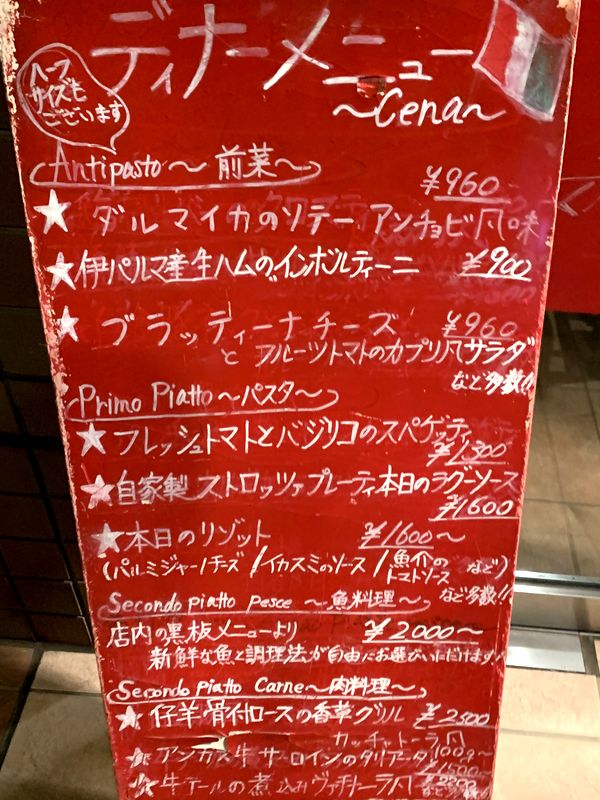 ディナーメニュー
ハーフ
サイズも
ございます
～Cena～
Antipasto～前菜～
¥960
★ダルマイカのソテーアンチョビ風味
★伊パルマ産生ハムのインボルティーニ ¥900
★ブラッティーナチーズ ¥960
とフルーツトマトのカプリ風サラダ
など多数!!
Primo Piatto～パスタ～
★フレッシュトマトとバジリコのスパゲッティ
¥1,300
★自家製ストロッツァプレーティ本日のラグーソース
¥1600
★本日のリゾット ¥1600～
(パルミジャーノチーズ/イカスミのソース/魚介のトマトソース など)
など多数!!
Secondo piatto Pesce ～魚料理～
店内の黒板メニューより ¥2000～
新鮮な魚と調理法が自由にお選びいただけます!
Secondo Piatto Carne～肉料理～
★仔羊骨付ロースの香草グリル ¥2500
カッチャトーラ風
★アンガス牛サーロインのタリアータ 100g～
¥1500～
★牛テールの煮込みヴァチナーラ風
など多数!!